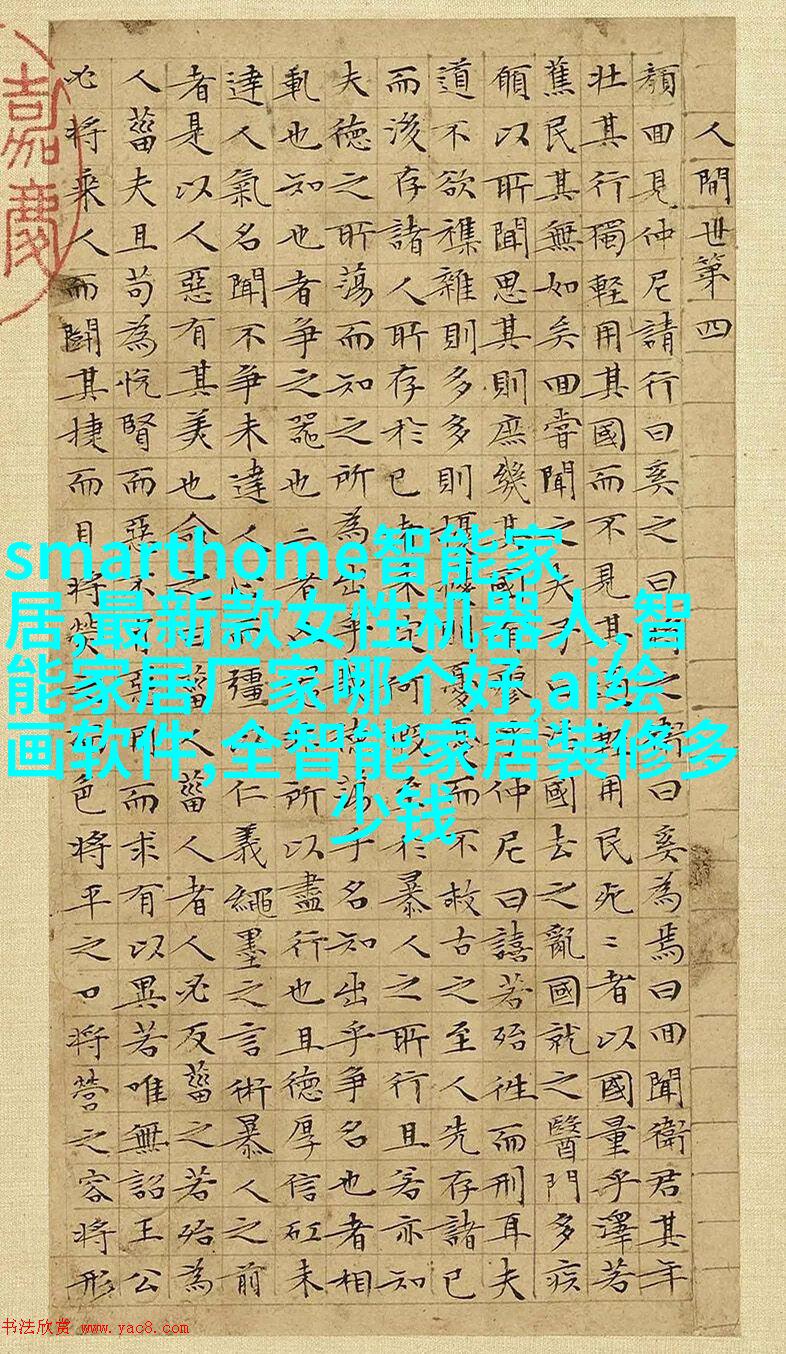 人間世第四
顏回見仲尼請行曰奚之曰將之衛曰奚為焉曰回聞衛君其年
壯其行獨輕用其國而不見其過輕用民死〻者以國量乎澤若
蕉民其無如矣回嘗聞之夫子曰治國去之亂國就之醫門多疾
願以所聞思其則庶幾其國有瘳乎仲尼曰譆若殆往而刑耳夫
道不欲襍雜則多多則擾擾則憂憂而不救古之至人先存諸已
而後存諸人所存於已者未定何暇至於暴人之所行且若亦知
夫德之所蕩而知之所為出乎德蕩乎名知出乎爭名也者相
軋也知也者爭之器也二者凶器非所以盡行也且德厚信矼未
達人氣名聞不爭未達人心彊以仁義繩墨之言術暴人之前
者是以人惡有其美也命之曰菑人菑人者人必反菑之若殆為
人菑夫且苟為悅賢而惡不肖惡用而求有以異若唯無詔王公
必將乘人而鬭其捷而目將熒之而色將平之口將營之容將形
嘉慶
smarthome智能家
居,最新款女性机器人,智
能家居厂家哪个好,ai绘
画软件,全智能家居装修多
少钱
书法欣赏 www.yac8.com